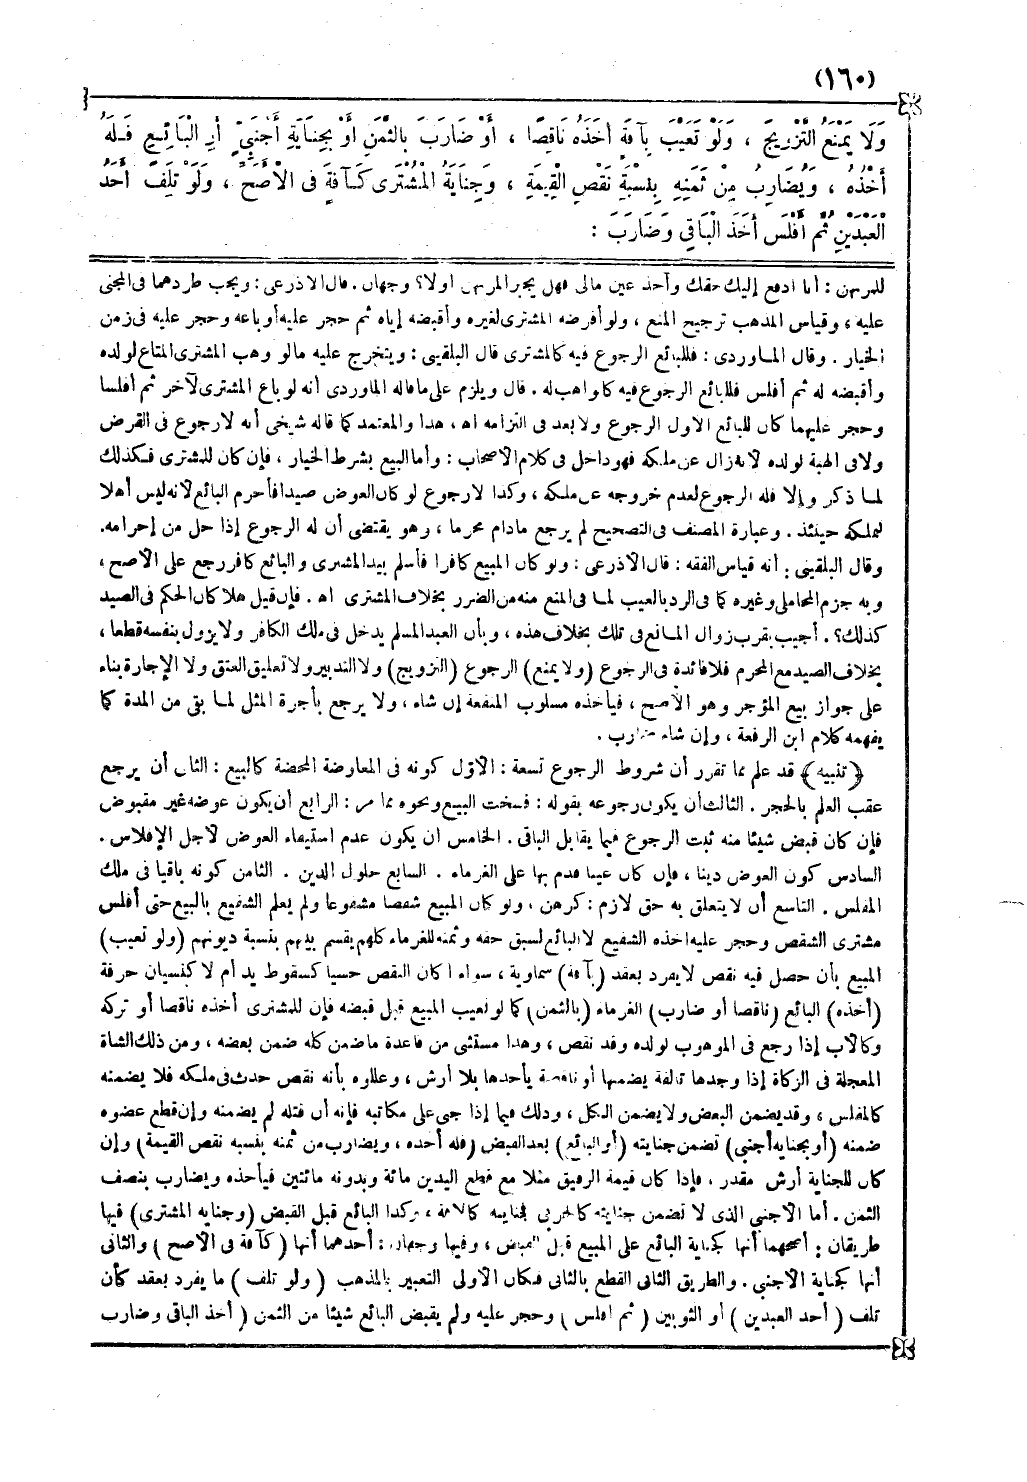 (١٦٠)
وَلَا يَمْنَعُ التَّزْوِيجُ ، وَلَوْ تَعَيَّبَ بِآفَةٍ أَخَذَهُ نَاقِصًا ، أَوْ ضَارَبَ بِالثَّمَنِ أَوْ بِجِنَايَةِ أَجْنَبِيٍّ أَوِ الْبَائِعِ فَلَهُ
أَخْذُهُ ، وَيُضَارِبُ مِنْ ثَمَنِهِ بِنِسْبَةِ نَقْصِ الْقِيمَةِ ، وَجِنَايَةُ الْمُشْتَرِى كَآفَةٍ فِى الْأَصَحِّ ، وَلَوْ تَلِفَ أَحَدُ
الْعَبْدَيْنِ ثُمَّ أَفْلَسَ أَخَذَ الْبَاقِى وَضَارَبَ :
للمرتهن : أنا ادفع إليك حقك وآخذ عين مالى فهل يجبر المرتهن اولا؟ وجهان . قال الاذرعى : ويجب طردهما فى المجنى
عليه ، وقياس المذهب ترجيح المنع ، ولو أقرضه المشترى لغيره وأقبضه إياه ثم حجر عليه أو باعه وحجر عليه فى زمن
الخيار . وقال الماوردى : فللبائع الرجوع فيه كالمشترى قال البلقينى : ويتخرج عليه مالو وهب المشترى المتاع لولده
وأقبضه له ثم أفلس فللبائع الرجوع فيه كالواهب له . قال ويلزم على ماقاله الماوردى أنه لو باع المشترى لآخر ثم أفلسا
وحجر عليهما كان للبائع الاول الرجوع ولا بعد فى التزامه اه ، هذا والمعتمد كما قاله شيخى أنه لارجوع فى القرض
ولا فى الهبة لولده لانه زال عن ملكه فهو داخل فى كلام الاصحاب : وأما البيع بشرط الخيار ، فإن كان للمشترى فكذلك
لما ذكر وإلا فله الرجوع لعدم خروجه عن ملكه ، وكذا لارجوع لو كان العوض صيدا فأحرم البائع لانه ليس أهلا
لتملكه حينئذ . وعبارة المصنف فى التصحيح لم يرجع مادام محرما ، وهو يقتضى أن له الرجوع إذا حل من إحرامه .
وقال البلقينى : أنه قياس الفقه : قال الاذرعى : ولو كان المبيع كافرا فأسلم بيد المشترى والبائع كافر رجع على الأصح ،
وبه جزم المحاملى وغيره كما فى الرد بالعيب لما فى المنع منه من الضرر بخلاف المشترى اه . فإن قيل هلا كان الحكم فى الصيد
كذلك؟ . أجيب بقرب زوال المانع فى تلك بخلاف هذه ، وبأن العبد المسلم يدخل فى ملك الكافر ولا يزول بنفسه قطعا ،
بخلاف الصيد مع المحرم فلا فائدة فى الرجوع (ولا يمنع) الرجوع (التزويج) ولا التدبير ولا تعليق العتق ولا الإجارة بناء
على جواز بيع المؤجر وهو الأصح ، فيأخذه مسلوب المنفعة إن شاء ، ولا يرجع بأجرة المثل لما بقى من المدة كما
يفهمه كلام ابن الرفعة ، وإن شاء ضارب .
﴿ تنبيه ﴾ قد علم مما تقرر أن شروط الرجوع تسعة : الأول كونه فى المعاوضة المحضة كالبيع : الثانى أن يرجع
عقب العلم بالحجر . الثالث أن يكون رجوعه بقوله : فسخت البيع ونحوه مما مر : الرابع أن يكون عوضه غير مقبوض
فإن كان قبض شيئا منه ثبت الرجوع فيما يقابل الباقى . الخامس ان يكون عدم استيفاء العوض لأجل الإفلاس .
السادس كون العوض دينا ، فإن كان عينا قدم بها على الغرماء . السابع حلول الدين . الثامن كونه باقيا فى ملك
المفلس . التاسع أن لا يتعلق به حق لازم : كرهن ، ولو كان المبيع شقصا مشفوعا ولم يعلم الشفيع بالبيع حتى أفلس
مشترى الشقص وحجر عليه اخذه الشفيع لا البائع لسبق حقه وثمنه للغرماء كلهم يقسم بينهم بنسبة ديونهم (ولو تعيب)
المبيع بأن حصل فيه نقص لا يفرد بعقد (بآفة) سماوية ، سواء أكان النقص حسيا كسقوط يد أم لا كنسيان حرفة
(أخذه) البائع (ناقصا أو ضارب) الغرماء (بالثمن) كما لو تعيب المبيع قبل قبضه فإن للمشترى أخذه ناقصا أو تركه
وكالأب إذا رجع فى الموهوب لولده وقد نقص ، وهذا مستثنى من قاعدة ماضمن كله ضمن بعضه ، ومن ذلك الشاة
المعجلة فى الزكاة إذا وجدها تالفة يضمنها أو ناقصة يأخذها بلا أرش ، وعللوه بأنه نقص حدث فى ملكه فلا يضمنه
كالمفلس ، وقد يضمن البعض ولا يضمن الكل ، وذلك فيما إذا جنى على مكاتبه فإنه أن قتله لم يضمنه وإن قطع عضوه
ضمنه (أو بجناية أجنبى) تضمن جنايته (أو البائع) بعد القبض (فله أخذه ، ويضارب من ثمنه بنسبة نقص القيمة) وإن
كان للجناية أرش مقدر ، فإذا كان قيمة الرقيق مثلا مع قطع اليدين مائة وبدونه مائتين فيأخذه ويضارب بنصف
الثمن . أما الاجنبى الذى لا تضمن جنايته كالحربى فجنايته كالآفة ، وكذا البائع قبل القبض (وجناية المشترى) فيها
طريقان : أصحهما أنها كجناية البائع على المبيع قبل القبض ، وفيها وجهان : أحدهما أنها (كآفة فى الأصح) والثانى
أنها كجناية الاجنبى . والطريق الثانى القطع بالثانى فكان الأولى التعبير بالمذهب (ولو تلف) ما يفرد بعقد كأن
تلف (أحد العبدين) أو الثوبين (ثم افلس) وحجر عليه ولم يقبض البائع شيئا من الثمن (أخذ الباقى وضارب